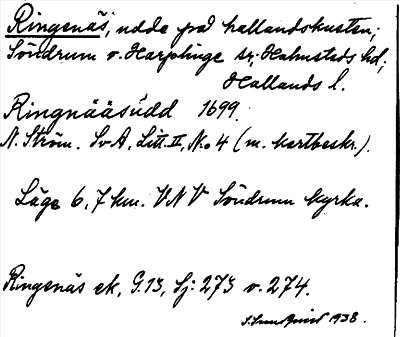 Ringenäs, udde på hallandskusten;
Söndrum o. Harplinge sr; Halmstads hd;
Hallands l.
Ringnääsudd 1699.
N. Ström. Sv. A, Litt. II, No 4 (m. kartbeskr.).
Läge 6,7 km. VNV Söndrum kyrka.
Ringenäs ek, G.13, Sj: 273 o. 274.
1938.